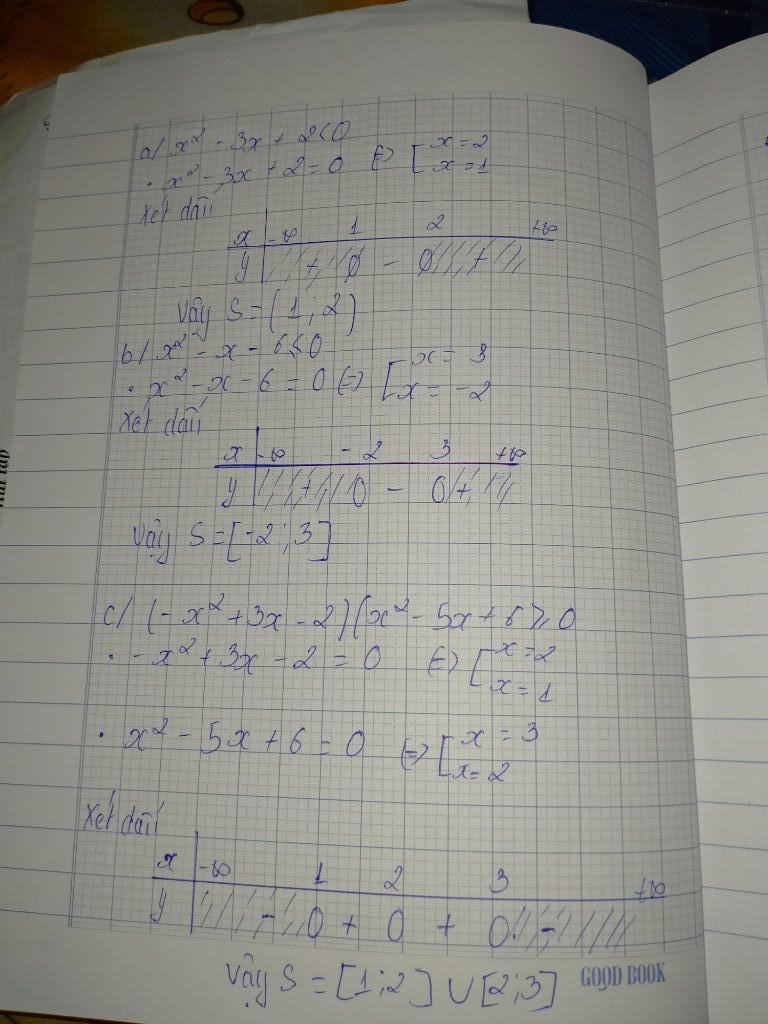 a/ x² - 3x + 2 < 0
. x² - 3x + 2 = 0 (=) [ x = 2
x = 1
Xét dấu
x -∞ 1 2 +∞
y + 0 - 0 +
Vậy S = (1; 2)
b/ x² - x - 6 ≤ 0
. x² - x - 6 = 0 (=) [ x = 3
x = -2
Xét dấu
x -∞ -2 3 +∞
y + 0 - 0 +
Vậy S = [-2; 3]
c/ (-x² + 3x - 2)(x² - 5x + 6 ≥ 0
. -x² + 3x - 2 = 0 (=) [ x = 2
x = 1
. x² - 5x + 6 = 0 (=) [ x = 3
x = 2
Xét dấu
x -∞ 1 2 3 +∞
y - 0 + 0 + 0 -
Vậy S = [1; 2] ∪ [2; 3]
GOOD BOOK